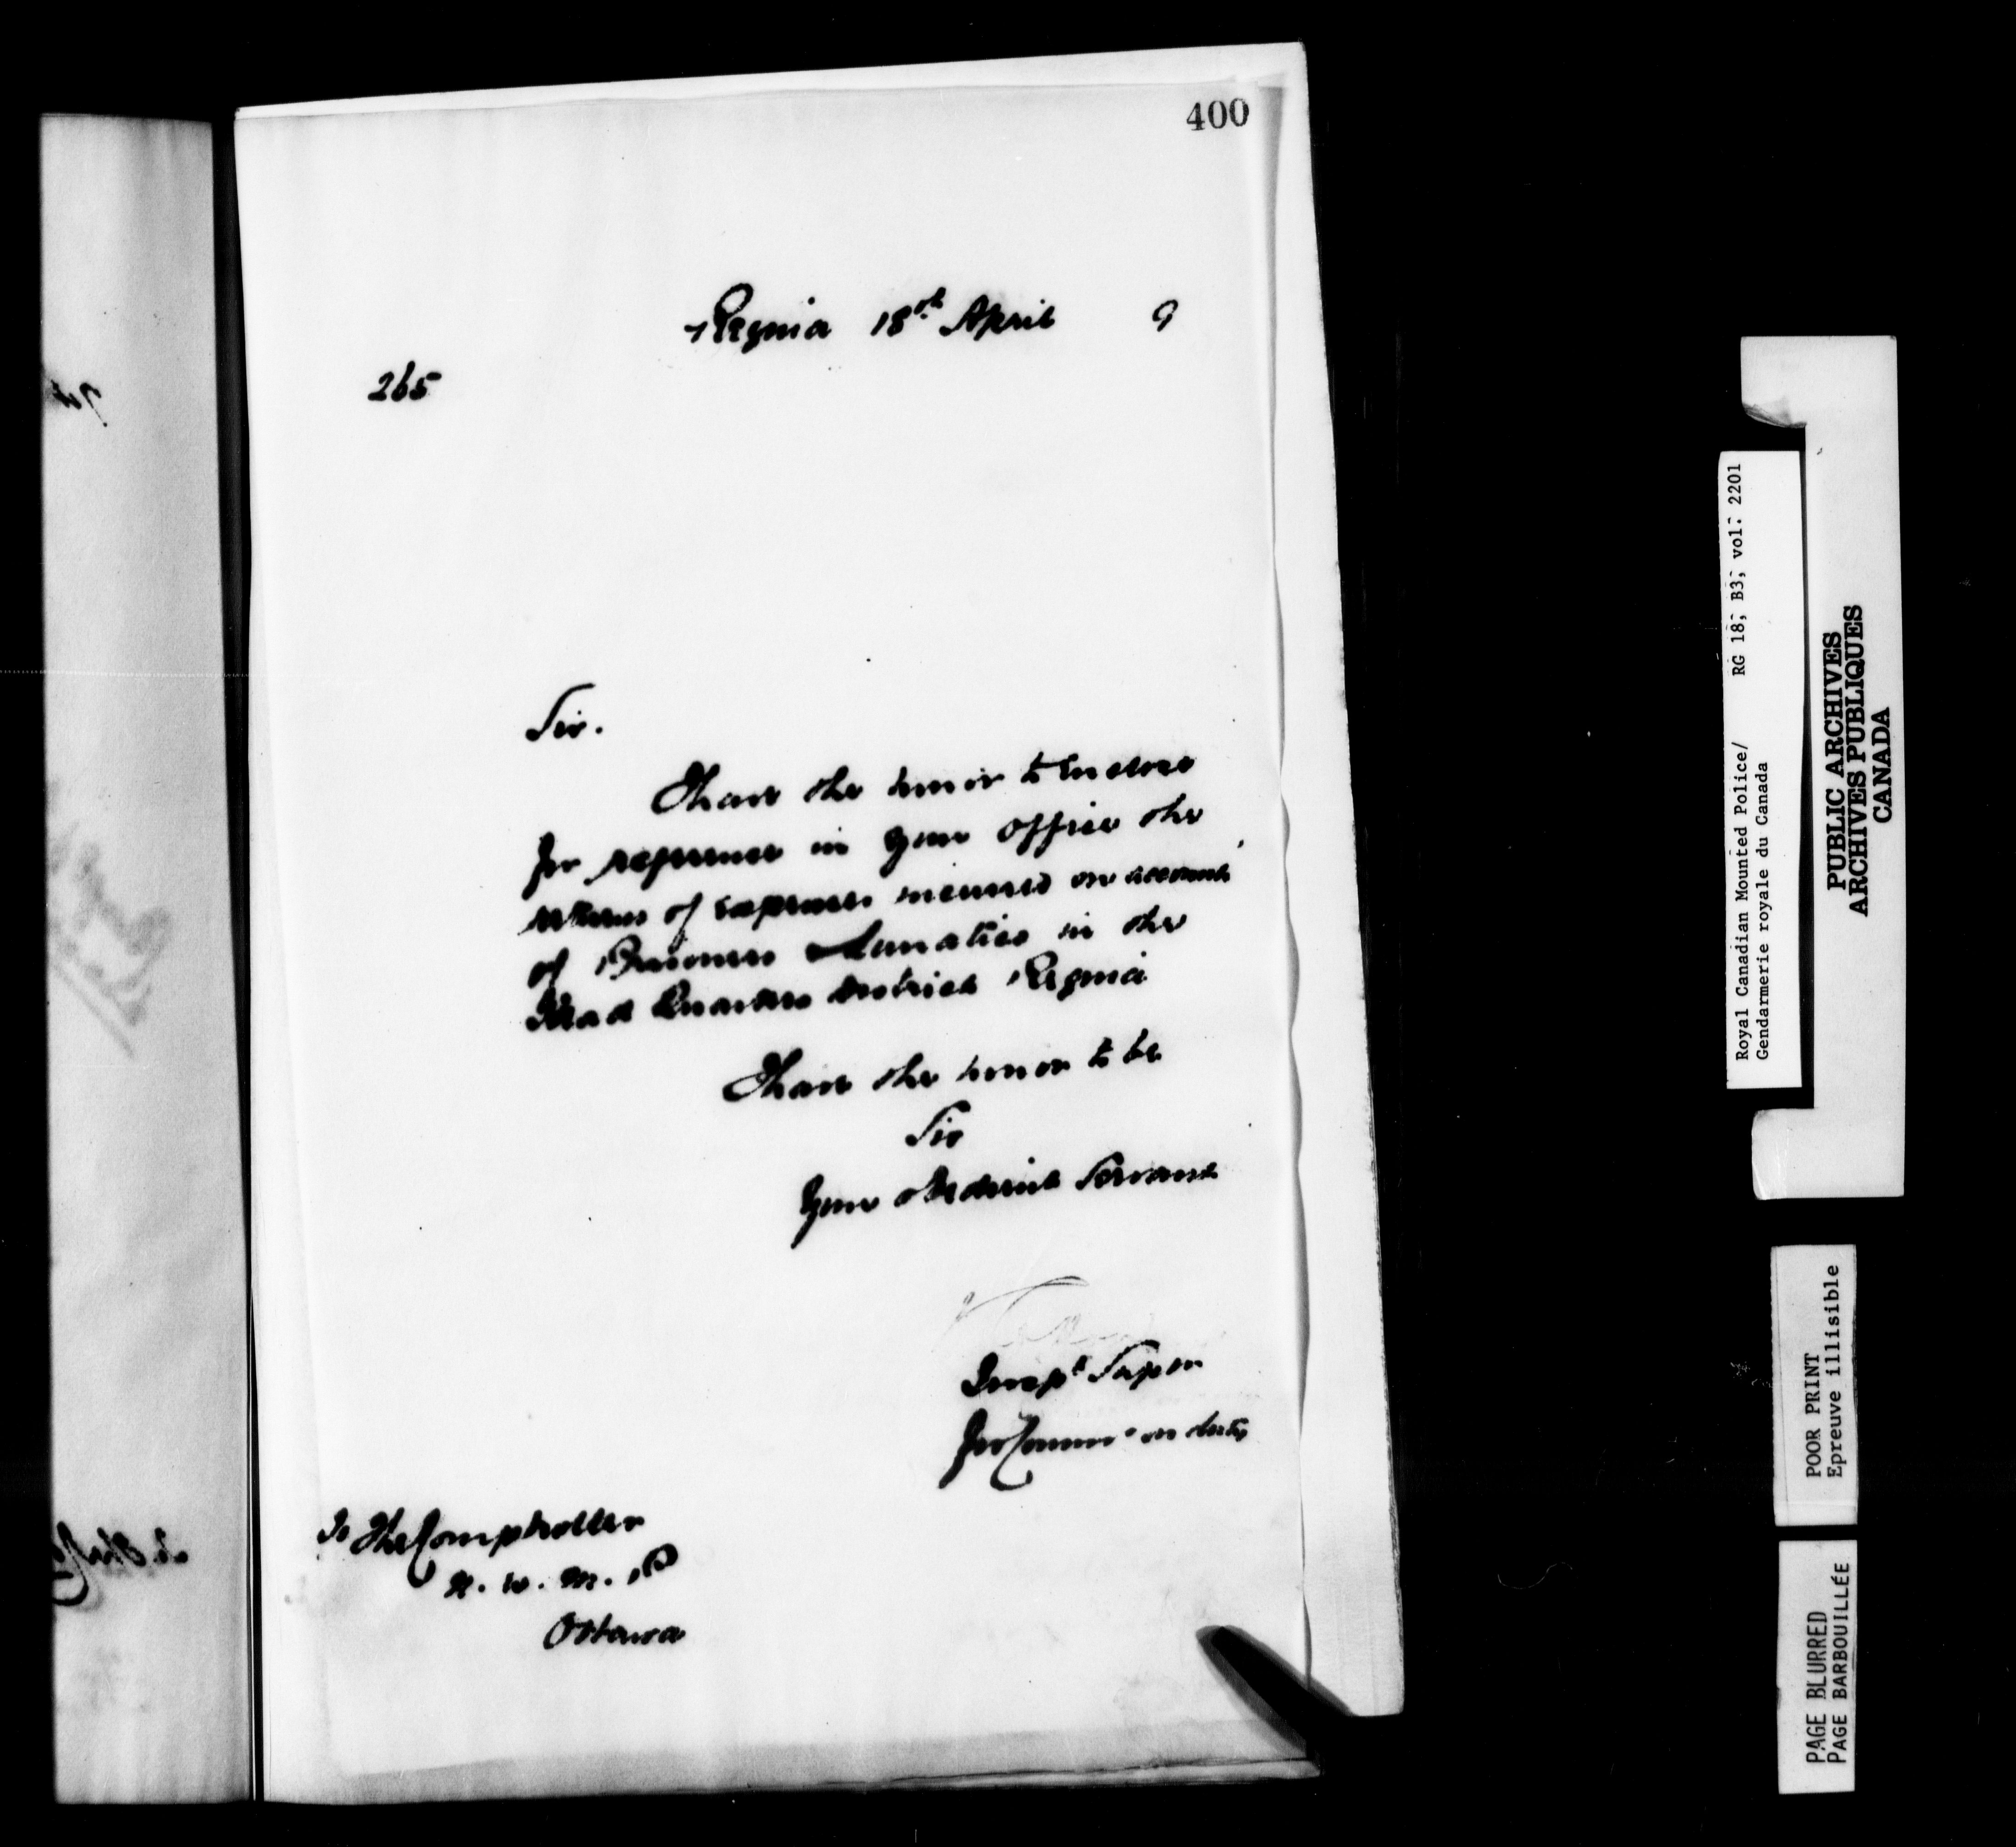 400
Regina 18th April 9
265
Sir.
I have the honor to enclose
for reference in your office the
returns of expenses incurred on account
of Prisoners & Lunatics in the
Head Quarters District Regina
I have the honor to be
Sir
Your obedient Servant
Inspr Supm
for Commr on duty
To The Comptroller
N. W. M. P
Ottawa
Royal Canadian Mounted Police/ RG 18, B3, vol. 2201
Gendarmerie royale du Canada
PUBLIC ARCHIVES
ARCHIVES PUBLIQUES
CANADA
POOR PRINT
Epreuve illisible
PAGE BLURRED
PAGE BARBOUILLÉE